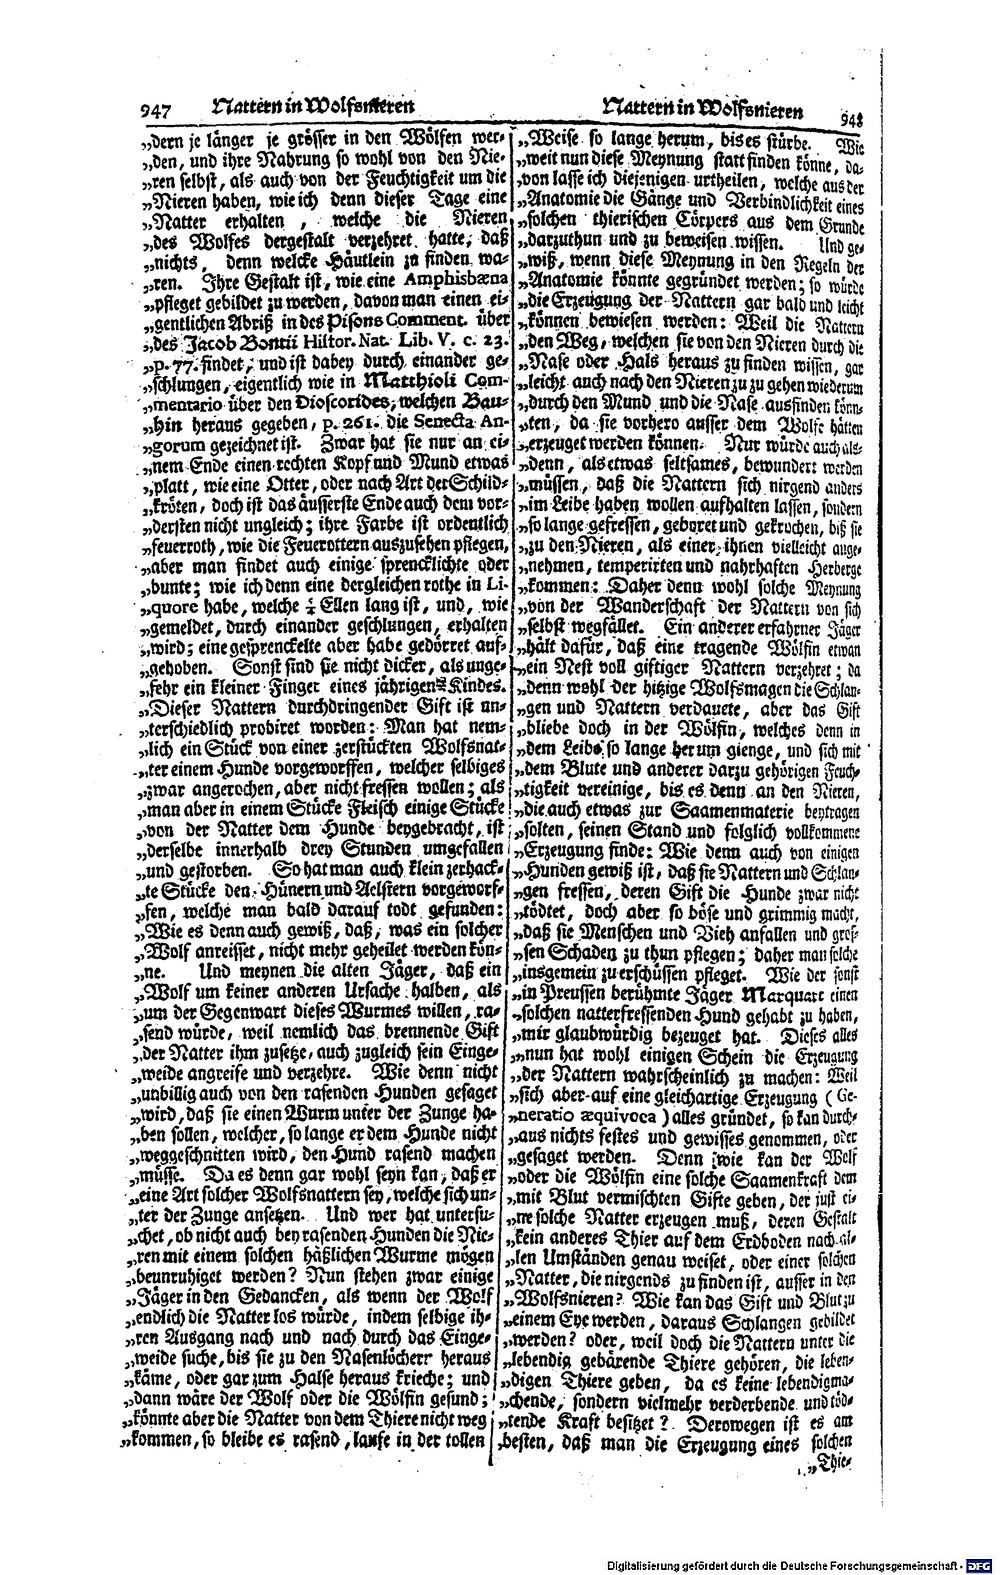 947 Nattern in Wolfsnieren
Nattern in Wolfsnieren 948
„dern je länger je grösser in den Wölfen wer-
„den, und ihre Nahrung so wohl von den Nie-
„ren selbst, als auch von der Feuchtigkeit um die
„Nieren haben, wie ich denn dieser Tage eine
„Natter erhalten, welche die Nieren
„des Wolfes dergestalt verzehret hatte, daß
„nichts, denn welcke Häutlein zu finden wa-
„ren. Ihre Gestalt ist, wie eine Amphisbæna
„pfleget gebildet zu werden, davon man einen ei-
„gentlichen Abriß in des Pisons Comment. über
„des Jacob Bontii Histor. Nat. Lib. V. c. 23.
„p. 77. findet, und ist dabey durch einander ge-
„schlungen, eigentlich wie in Matthioli Com-
„mentario über den Dioscorides, welchen Bau-
„hin heraus gegeben, p. 261. die Senecta An-
„gorum gezeichnet ist. Zwar hat sie nur an ei-
„nem Ende einen rechten Kopf und Mund etwas
„platt, wie eine Otter, oder nach Art der Schild-
„kröten, doch ist das äusserste Ende auch dem vor-
„dersten nicht ungleich; ihre Farbe ist ordentlich
„feuerroth, wie die Feuerottern auszusehen pflegen,
„aber man findet auch einige sprencklichte oder
„bunte; wie ich denn eine dergleichen rothe in Li-
„quore habe, welche Ellen lang ist, und, wie
„gemeldet, durch einander geschlungen, erhalten
„wird; eine gesprenckelte aber habe gedörret auf-
„gehoben. Sonst sind sie nicht dicker, als unge-
„fehr ein kleiner Finger eines jährigen Kindes.
„Dieser Nattern durchdringender Gift ist un-
„terschiedlich probiret worden: Man hat nem-
„lich ein Stück von einer zerstückten Wolfsnat-
„ter einem Hunde vorgeworffen, welcher selbiges
„zwar angerochen, aber nicht fressen wollen; als
„man aber in einem Stücke Fleisch einige Stücke
„von der Natter dem Hunde beygebracht, ist
„derselbe innerhalb drey Stunden umgefallen
„und gestorben. So hat man auch klein zerhack-
„te Stücke den Hünern und Aelstern vorgeworf-
„fen, welche man bald darauf todt gefunden:
„Wie es denn auch gewiß, daß, was ein solcher
„Wolf anreisset, nicht mehr geheilet werden kön-
„ne. Und meynen die alten Jäger, daß ein
„Wolf um keiner anderen Ursache halben, als
„um der Gegenwart dieses Wurmes willen, ra-
„send würde, weil nemlich das brennende Gift
„der Natter ihm zusetze, auch zugleich sein Einge-
„weide angreife und verzehre. Wie denn nicht
„unbillig auch von den rasenden Hunden gesaget
„wird, daß sie einen Wurm unter der Zunge ha-
„ben sollen, welcher, so lange er dem Hunde nicht
„weggeschnitten wird, den Hund rasend machen
„müsse. Da es denn gar wohl seyn kan, daß er
„eine Art solcher Wolfsnattern sey, welche sich un-
„ter der Zunge ansetzen. Und wer hat untersu-
„chet, ob nicht auch bey rasenden Hunden die Nie-
„ren mit einem solchen häßlichen Wurme mögen
„beunruhiget werden? Nun stehen zwar einige
„Jäger in den Gedancken, als wenn der Wolf
„endlich die Natter los würde, indem selbige ih-
„ren Ausgang nach und nach durch das Einge-
„weide suche, bis sie zu den Nasenlöchern heraus
„käme, oder gar zum Halse heraus krieche; und
„dann wäre der Wolf oder die Wölfin gesund;
„könnte aber die Natter von dem Thiere nicht weg
„kommen, so bleibe es rasend, laufe in der tollen
„Weise so lange herum, bis es stürbe. Wie
„weit nun diese Meynung statt finden könne, da-
„von lasse ich diejenigen urtheilen, welche aus der
„Anatomie die Gänge und Verbindlichkeit eines
„solchen thierischen Cörpers aus dem Grunde
„darzuthun und zu beweisen wissen. Und ge-
„wiß, wenn diese Meynung in den Regeln der
„Anatomie könnte gegründet werden; so würde
„die Erzeugung der Nattern gar bald und leicht
„können bewiesen werden: Weil die Nattern
„den Weg, welchen sie von den Nieren durch die
„Nase oder Hals heraus zu finden wissen, gar
„leicht auch nach den Nieren zu zu gehen wiederum
„durch den Mund und die Nase ausfinden könn-
„ten, da sie vorhero ausser dem Wolfe hätten
„erzeuget werden können. Nur würde auch als-
„denn, als etwas seltsames, bewundert werden
„müssen, daß die Nattern sich nirgend anders
„im Leibe haben wollen aufhalten lassen, sondern
„so lange gefressen, geboret und gekrochen, biß sie
„zu den Nieren, als einer ihnen vielleicht ange-
„nehmen, temperirten und nahrhaften Herberge
„kommen: Daher denn wohl solche Meynung
„von der Wanderschaft der Nattern von sich
„selbst wegfället. Ein anderer erfahrner Jäger
„hält dafür, daß eine tragende Wölfin etwan
„ein Nest voll giftiger Nattern verzehret; da
„denn wohl der hitzige Wolfsmagen die Schlan-
„gen und Nattern verdauete, aber das Gift
„bliebe doch in der Wölfin, welches denn in
„dem Leibe so lange herum gienge, und sich mit
„dem Blute und anderer darzu gehörigen Feuch-
„tigkeit vereinige, bis es denn an den Nieren,
„die auch etwas zur Saamenmaterie beytragen
„solten, seinen Stand und folglich vollkommene
„Erzeugung finde: Wie denn auch von einigen
„Hunden gewiß ist, daß sie Nattern und Schlan-
„gen fressen, deren Gift die Hunde zwar nicht
„tödtet, doch aber so böse und grimmig macht,
„daß sie Menschen und Vieh anfallen und gros-
„sen Schaden zu thun pflegen; daher man solche
„insgemein zu erschüssen pfleget. Wie der sonst
„in Preussen berühmte Jäger Marquart einen
„solchen natterfressenden Hund gehabt zu haben,
„mir glaubwürdig bezeuget hat. Dieses alles
„nun hat wohl einigen Schein die Erzeugung
„der Nattern wahrscheinlich zu machen: Weil
„sich aber auf eine gleichartige Erzeugung (Ge-
„neratio æquivoca) alles gründet, so kan durch-
„aus nichts festes und gewisses genommen, oder
„gesaget werden. Denn wie kan der Wolf
„oder die Wölfin eine solche Saamenkraft dem
„mit Blut vermischten Gifte geben, der just ei-
„ne solche Natter erzeugen muß, deren Gestalt
„kein anderes Thier auf dem Erdboden nach al-
„len Umständen genau weiset, oder einer solchen
„Natter, die nirgends zu finden ist, ausser in den
„Wolfsnieren? Wie kan das Gift und Blut zu
„einem Eye werden, daraus Schlangen gebildet
„werden? oder, weil doch die Nattern unter die
„lebendig gebärende Thiere gehören, die leben-
„digen Thiere geben, da es keine lebendigma-
„chende, sondern vielmehr verderbende und töd-
„tende Kraft besitzet? Derowegen ist es am
„besten, daß man die Erzeugung eines solchen
„Thie-
Digitalisierung gefördert durch die Deutsche Forschungsgemeinschaft - DFG